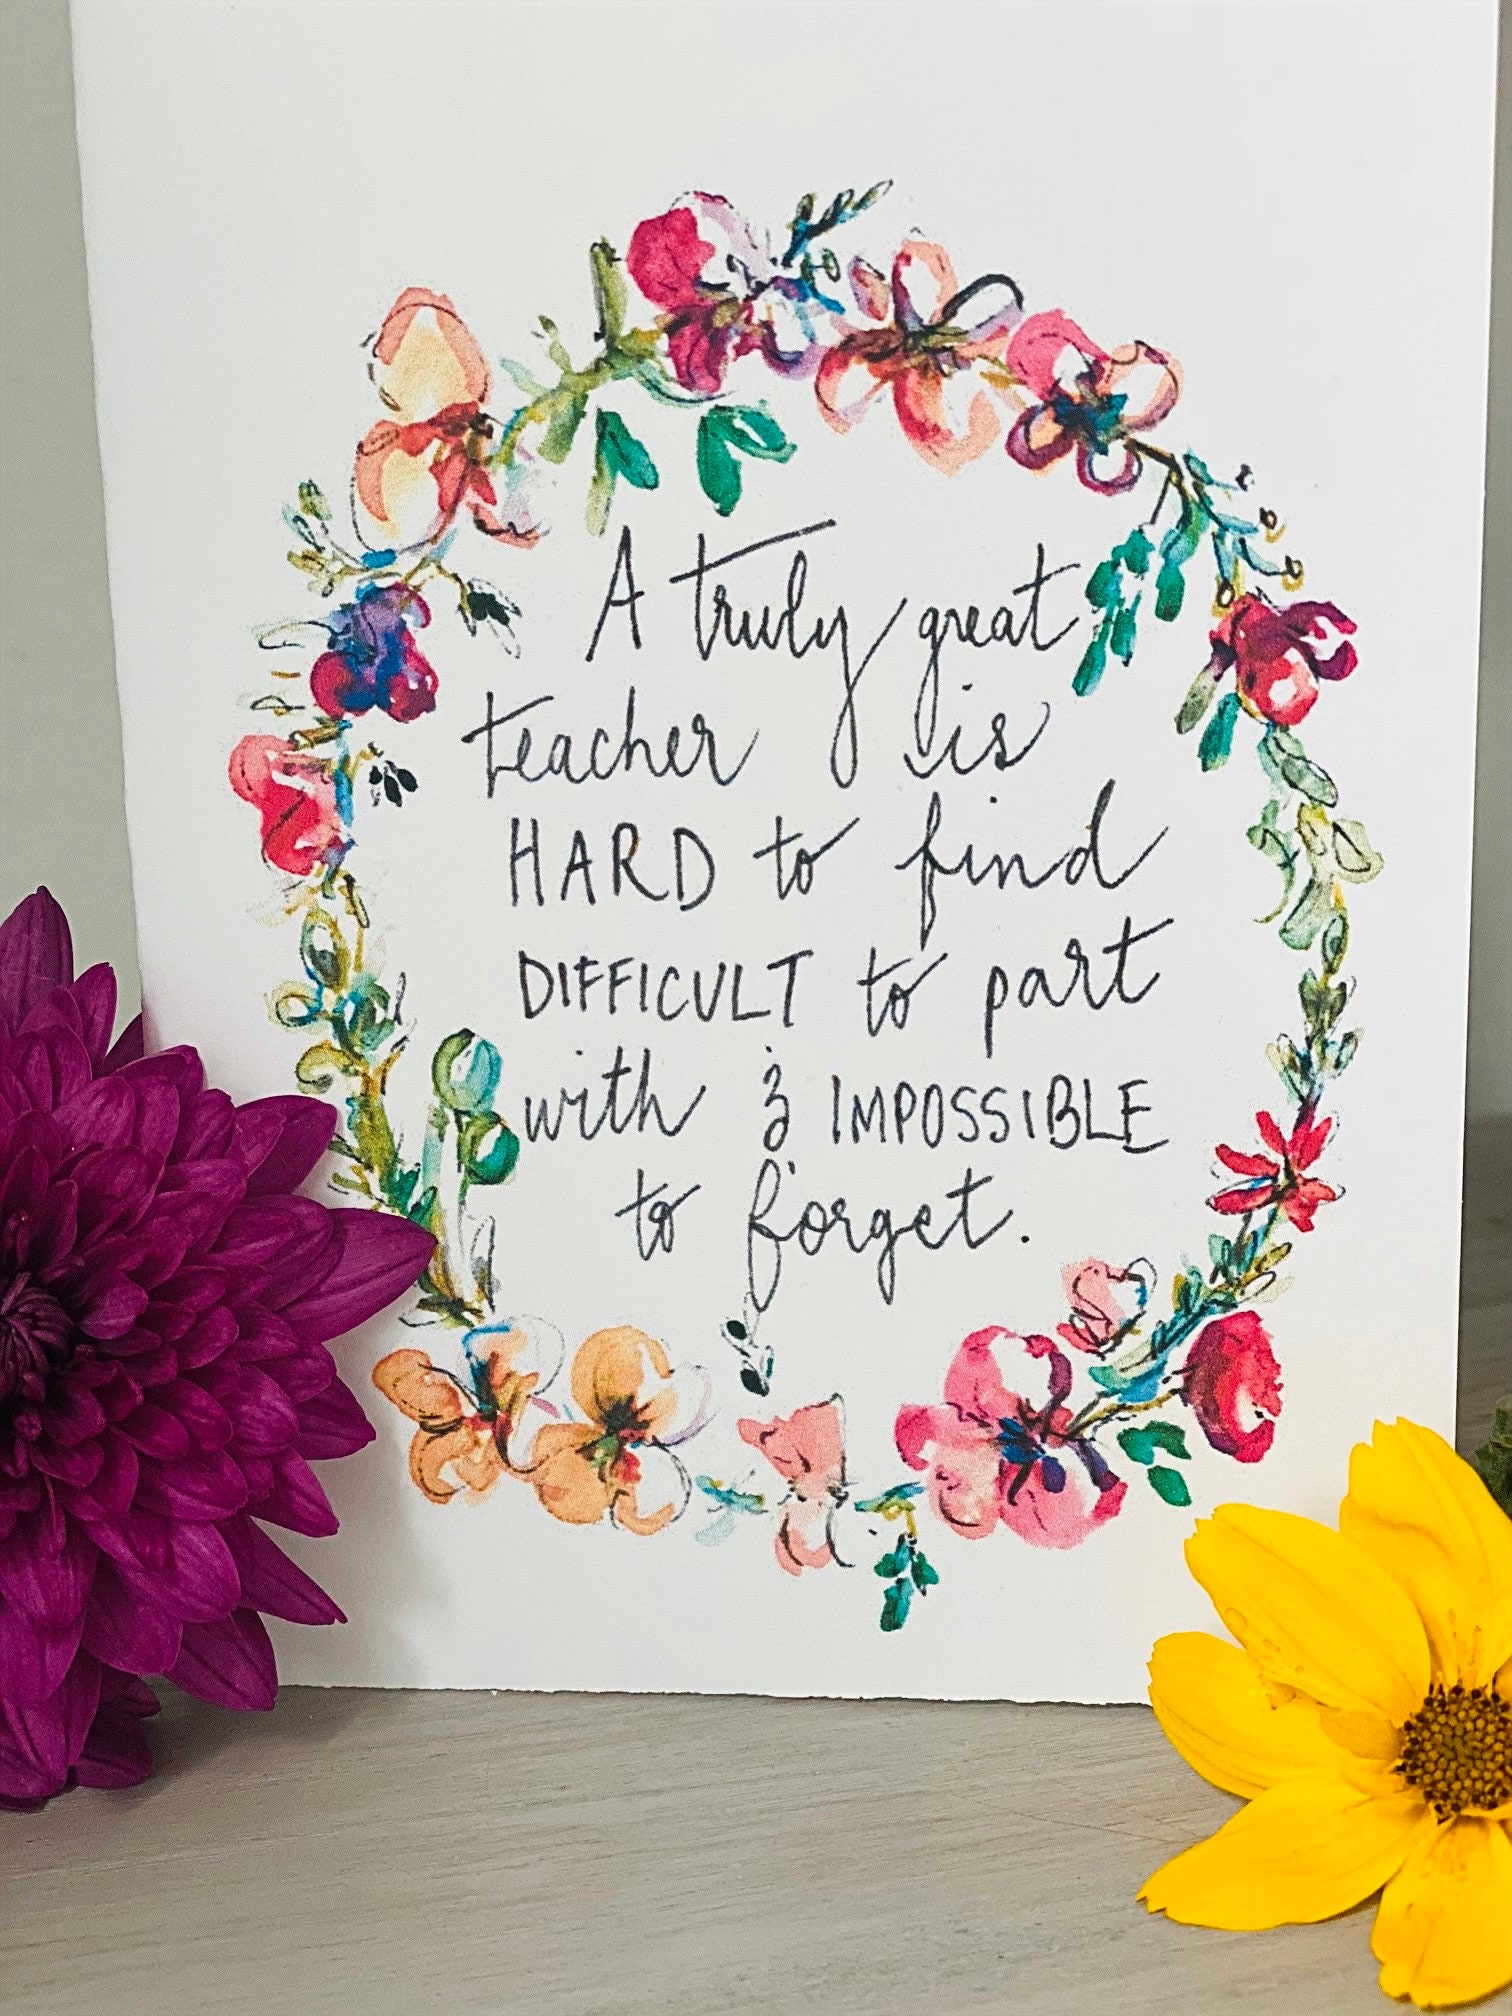 A truly great
teacher is
HARD to find
DIFFICULT to part
with & IMPOSSIBLE
to forget.